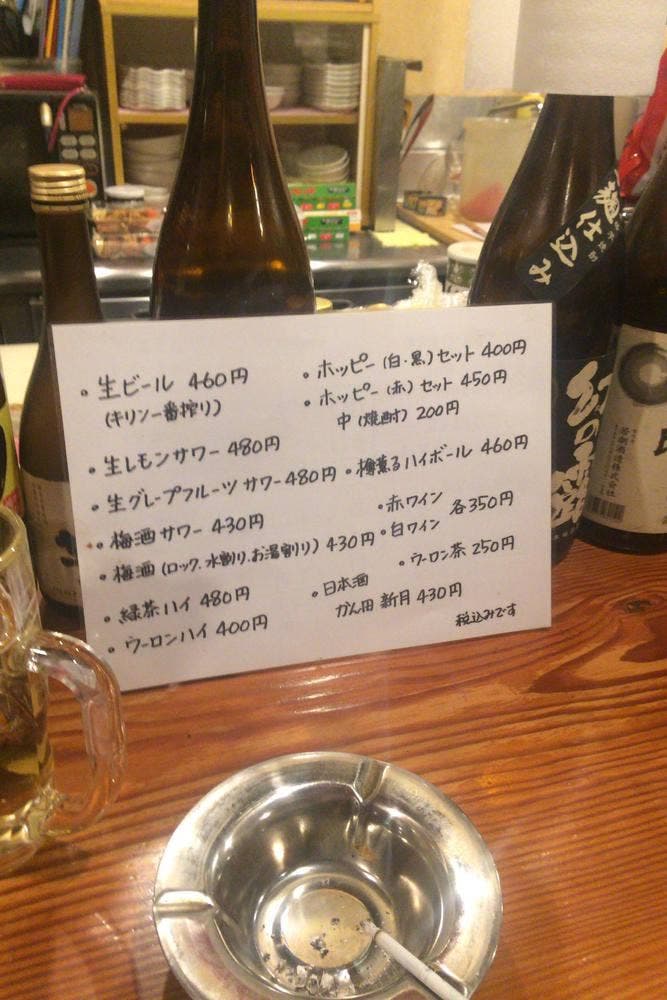 ・生ビール 460円
(キリン一番搾り)
・生レモンサワー 480円
・生グレープフルーツサワー 480円
・梅酒サワー 430円
・梅酒(ロック.水割り.お湯割り) 430円
・緑茶ハイ 480円
・ウーロンハイ 400円
・ホッピー(白・黒)セット 400円
・ホッピー(赤)セット 450円
中(焼酎) 200円
・樽薫るハイボール 460円
・赤ワイン
・白ワイン 各350円
・ウーロン茶 250円
・日本酒
かん用 新月 430円
税込みです
仕込み
若潮酒造株式会社